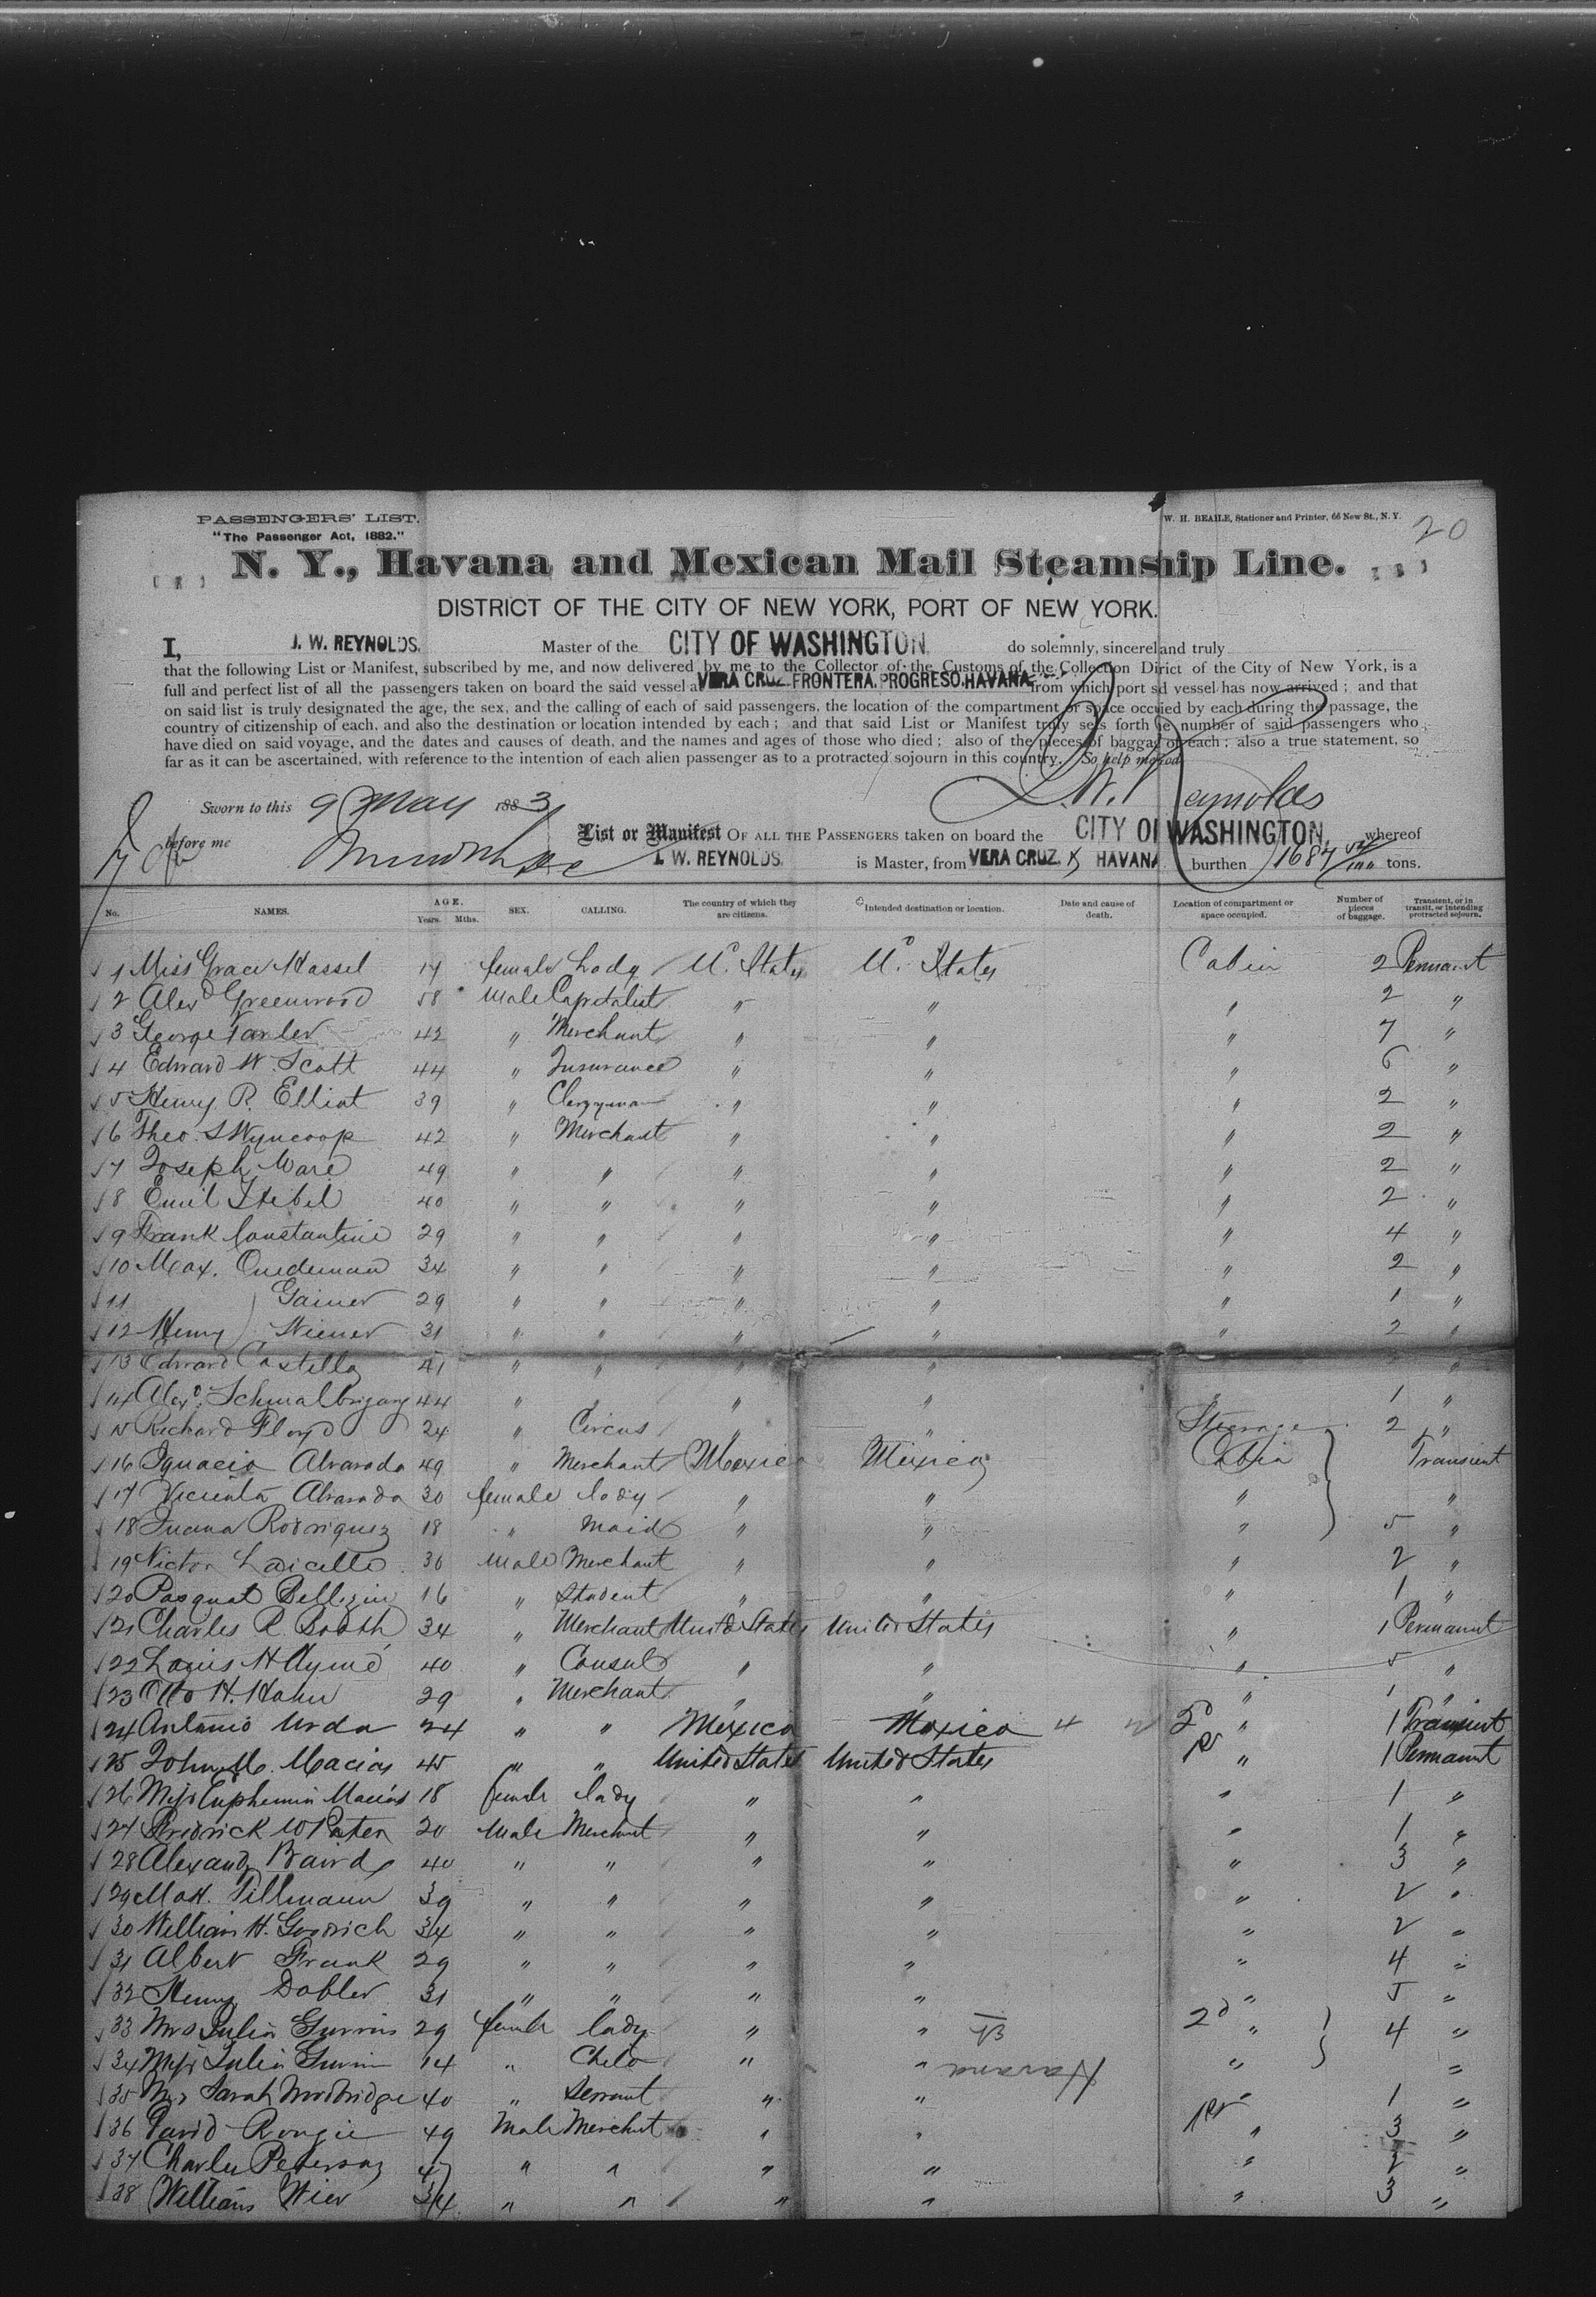 20
W. H. BEAILE, Stationer and Printer, 66 New St., N. Y.
PASSENGERS' LIST.
"The Passenger Act, 1882."
N. Y., Havana and Mexican Mail Steamship Line.
DISTRICT OF THE CITY OF NEW YORK, PORT OF NEW YORK.
I, J. W. REYNOLDS. Master of the CITY OF WASHINGTON. do solemnly, sincerel and truly
that the following List or Manifest, subscribed by me, and now delivered by me to the Collector of the Customs of the Collection Dirict of the City of New York, is a
full and perfect list of all the passengers taken on board the said vessel at VERA CRUZ. FRONTERA. PROGRESO. HAVANA. from which port sd vessel has now arrived ; and that
on said list is truly designated the age, the sex, and the calling of each of said passengers, the location of the compartment or space occuied by each during the passage, the
country of citizenship of each, and also the destination or location intended by each ; and that said List or Manifest truly sets forth e number of said passengers who
have died on said voyage, and the dates and causes of death, and the names and ages of those who died ; also of the pieces of baggag of each ; also a true statement, so
far as it can be ascertained, with reference to the intention of each alien passenger as to a protracted sojourn in this country. So help me God
Sworn to this 9 May 1883 J. W. Reynolds
before me
List or Manifest OF ALL THE PASSENGERS taken on board the CITY OF WASHINGTON, whereof
J. W. REYNOLDS. is Master, from VERA CRUZ. & HAVANA burthen 1684 tons.
No. NAMES. AGE. Years. Mths. SEX. CALLING. The country of which they are citizens. Intended destination or location. Date and cause of death. Location of compartment or space occupied. Number of pieces of baggage. Transient, or in transit, or intending protracted sojourn.
1 Miss Grace Hassel 17 female Lady U. States U. States Cabin 2 Permanent
2 Alex Greenwood 58 Male Capitalist " " " 2 "
3 George 42 " Merchant " " " 7 "
4 Edward W. Scott 44 " Insurance " " " 6 "
5 Henry P. Elliot 39 " Clergyman " " " 2 "
6 Theo. S Wyncoop 42 " Merchant " " " 2 "
7 Joseph Ware 49 " " " " " 2 "
8 Emil Stebel 40 " " " " " 2 "
9 Frank Constantine 29 " " " " " 4 "
10 Max. 34 " " " " " 2 "
11 Gainer 29 " " " " " 1 "
12 Henry Wiener 31 " " " " " 2 "
13 Edward Castello 41 " " " " "
14 Alex 44 " " " " 1 "
15 Richard Floyd 24 " Circus " " Steerage 2 "
16 Ignacio Alvarado 49 " Merchant Mexico Mexico Cabin Transient
17 Vicenta Alvarado 30 female lady " " " "
18 Juana Rodriguez 18 " Maid " " " 5 "
19 Victor 30 Male Merchant " " " 2 "
20 Pasqual 16 " Student " " " 1 "
21 Charles R. Booth 34 " Merchant United States United States " 1 Permanent
22 Louis H Aymé 40 " Consul " " " 5 "
23 Otto H. Hahn 29 " Merchant " " " 1 "
24 Antonio Urda 24 " " Mexico Mexico 2d " 1 Transient
25 John M. Macias 45 " " United States United States 1st " 1 Permanent
26 Miss Euphemia Macias 18 female lady " " " 1 "
27 Fredrick W Pater 20 Male Merchant " " " 1 "
28 Alexandr Baird 40 " " " " " 3 "
29 Max. Tillmann 39 " " " " " 2 "
30 William H. Goodrich 34 " " " " " 2 "
31 Albert Frank 29 " " " " " 4 "
32 Henry Dobler 31 " " " " " 5 "
33 Mrs Julia 29 female lady " " 2d " 4 "
34 Miss Julia 14 " Child " " Havana " "
35 Mrs Sarah Woodbridge 40 " Servant " " " 1 "
36 David 49 Male Merchant " " 1st " 3 "
37 Charles Peterson 47 " " " " " 2 "
38 William Wier 34 " " " " " 3 "